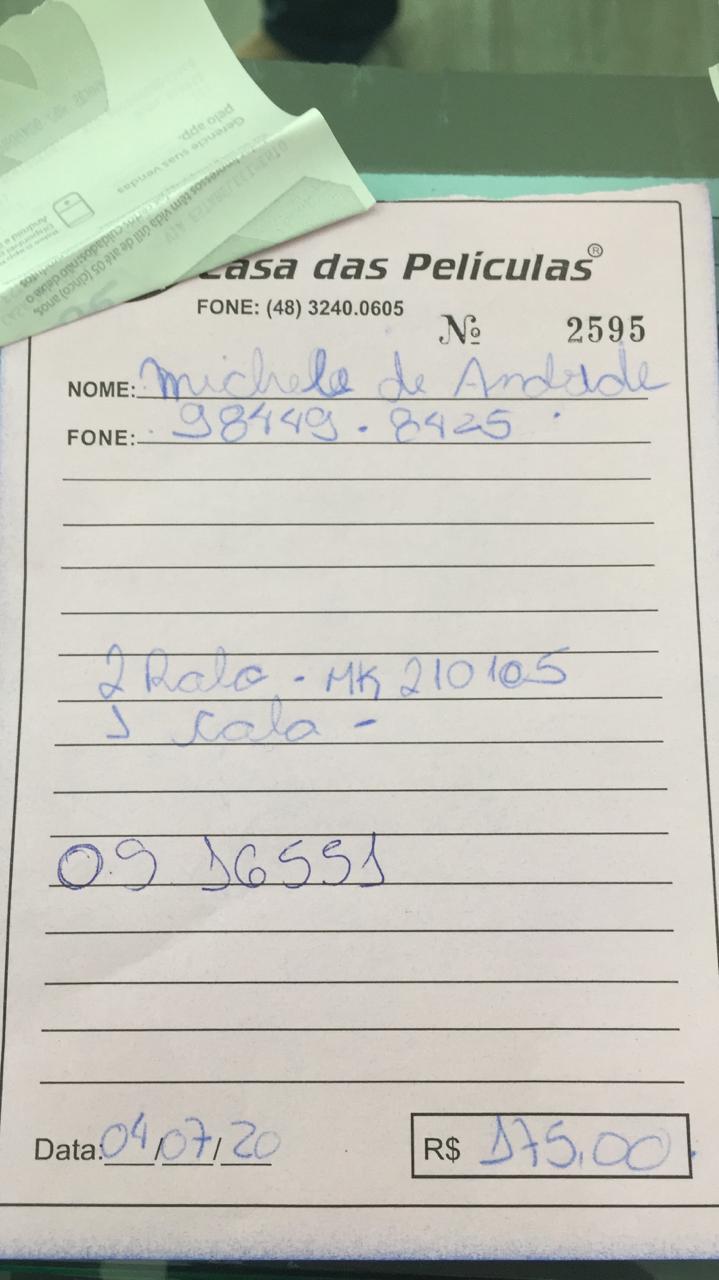 Gerencie suas vendas
pelo app.
Casa das Películas®
FONE: (48) 3240.0605
Nº 2595
NOME: Michele de Andrade
FONE: 98449.8425
2 Ralo - MK 210105
1 Rala -
OS 16551
Data: 04/07/20
R$ 175,00